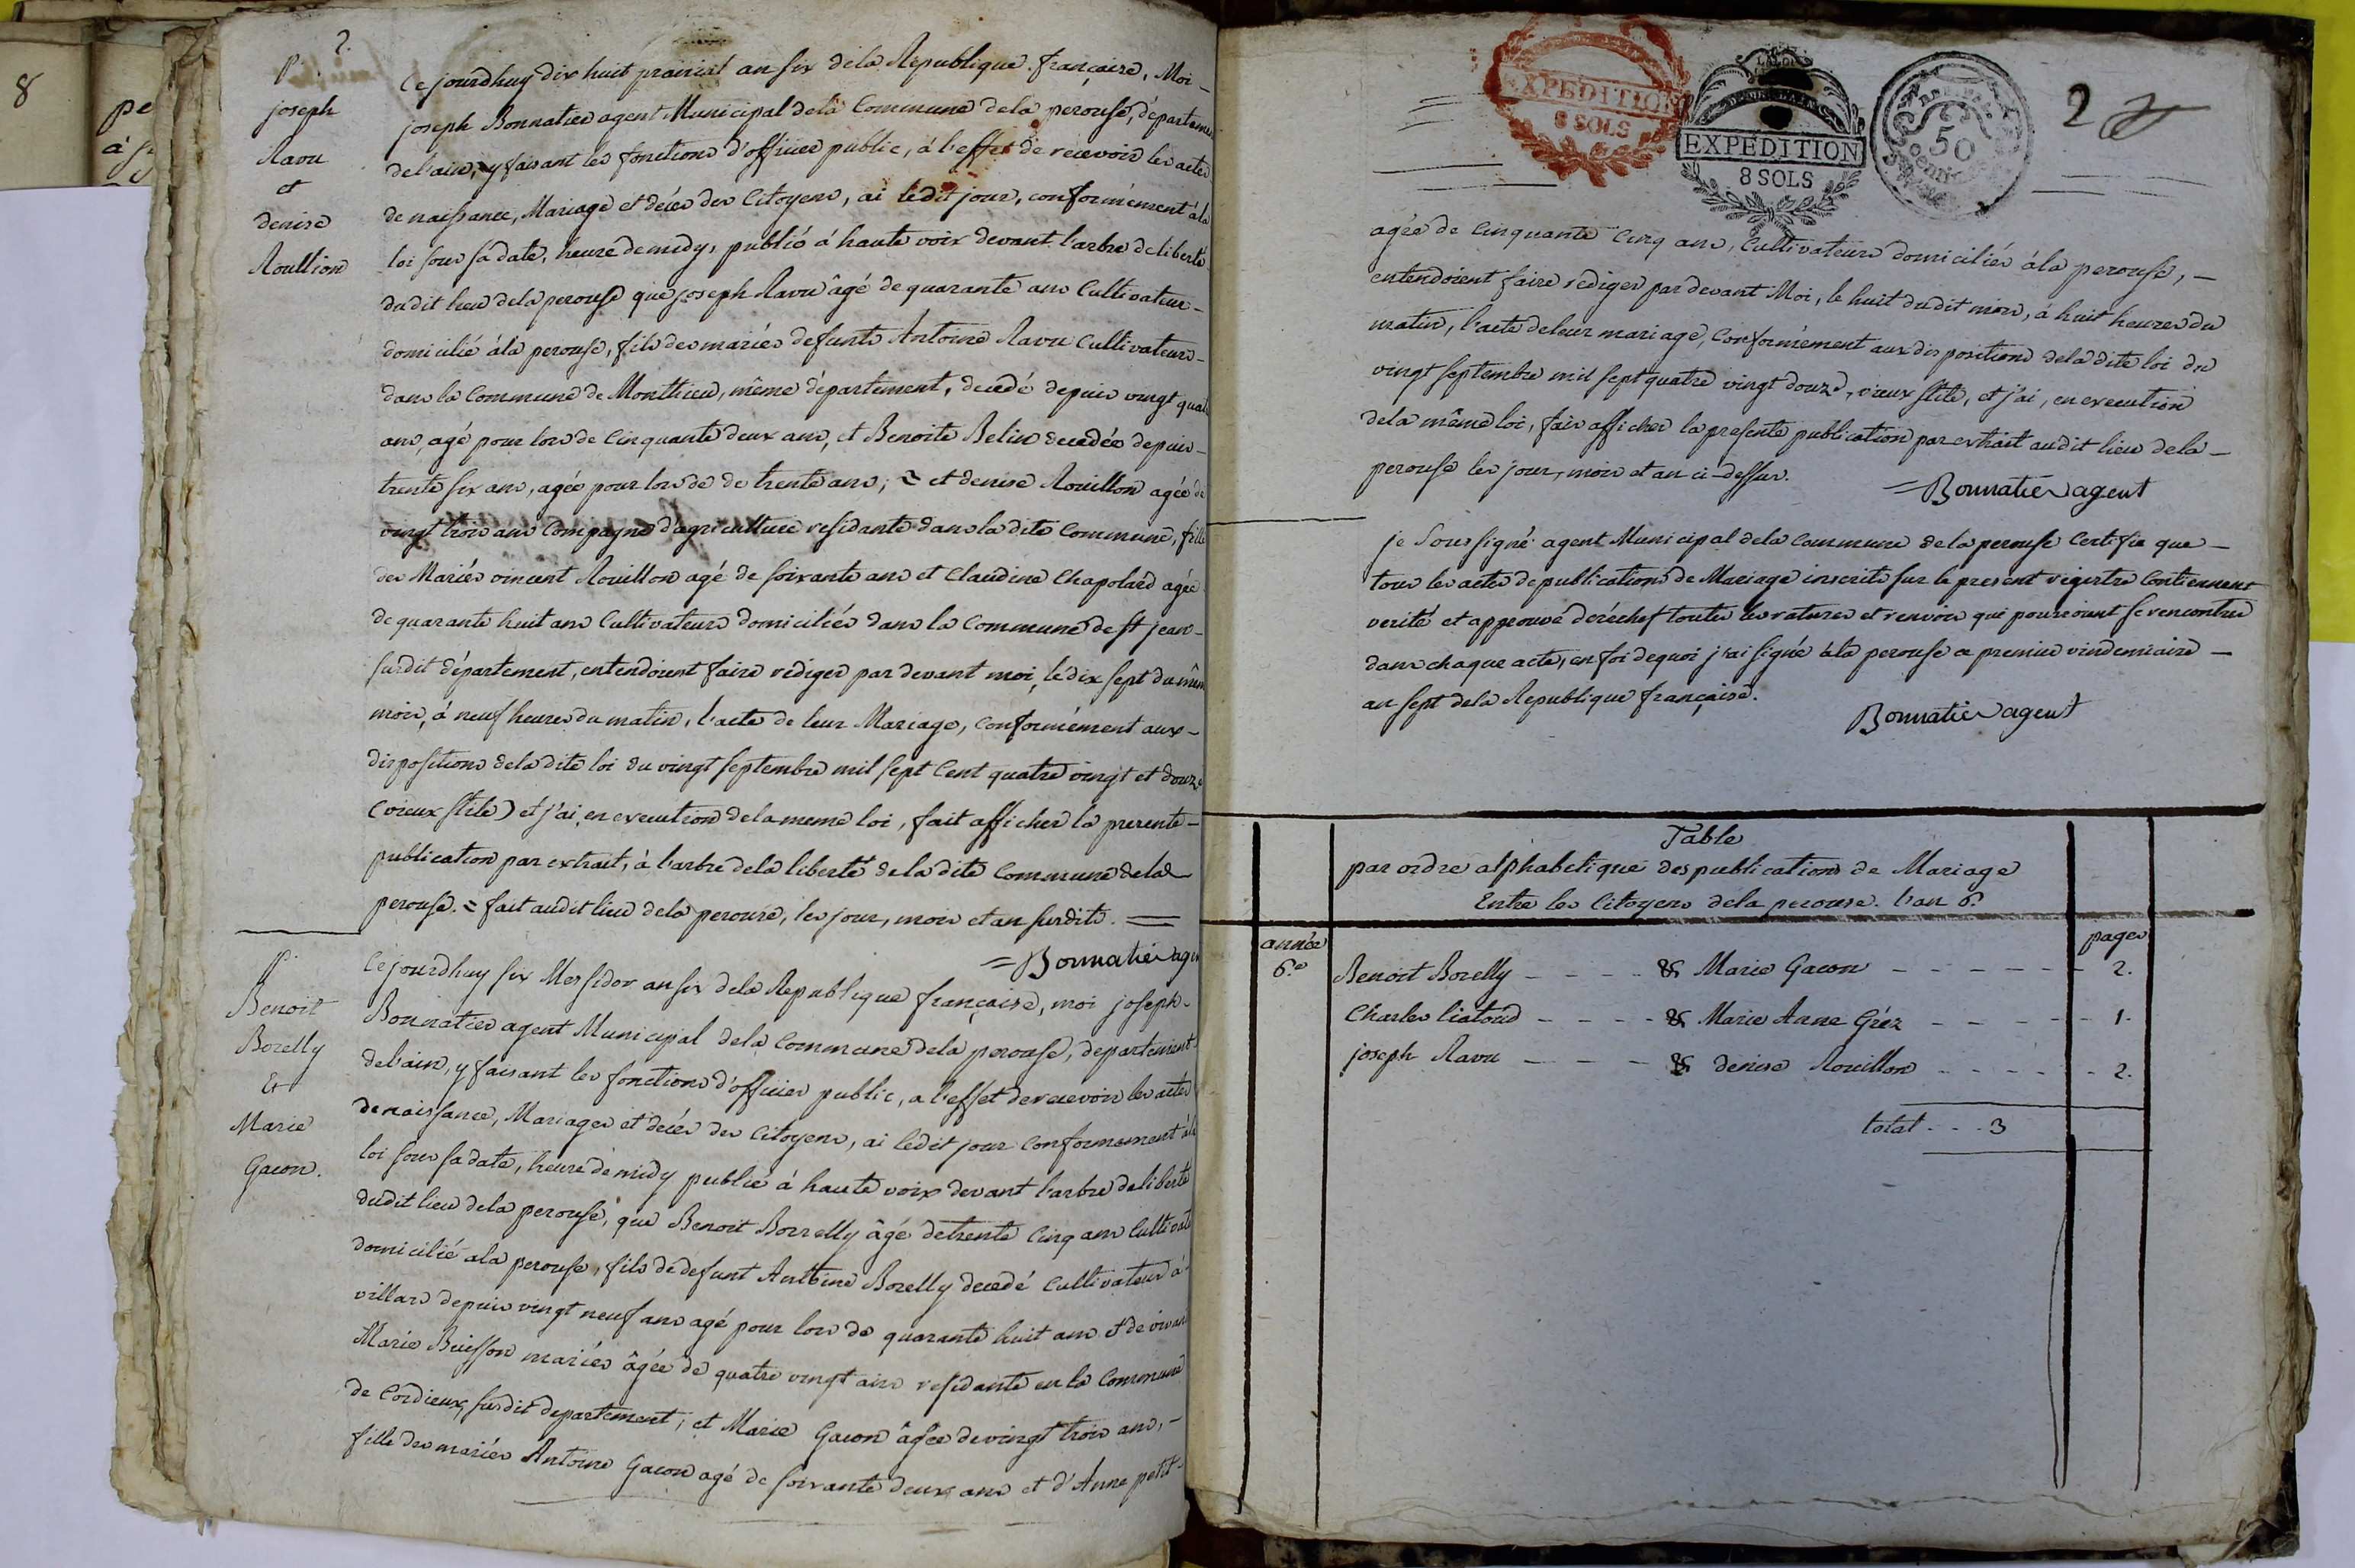 8
pe
2.
P.
joseph
Ravu
et
denise
Roullion
Ce jourdhuy dix huit prairial an six de la Republique française, Moi –
joseph Bonnatier agent Municipal de la Commune de la perouse, départemen
de l'ain, y faisant les fonctions d'officier public, à l'effet de recevoir les actes
de naissance, Mariage et décès des Citoyens, ai ledit jour, conformément à la
loi sous sa date, heure de midy, publié à haute voix devant l'arbre de liberté
dudit lieu de la perouse que joseph Ravu âgé de quarante ans Cultivateur –
domicilié à la perouse, fils des mariés defunts Antoine Ravu Cultivateurs –
dans la Commune de Monthieu, même département, decedé depuis vingt quat
ans, agé pour lors de Cinquante deux ans, et Benoite Belin decedée depuis –
trente six ans, agée pour lors de de trente ans; et denise Rouillon agée de
vingt trois ans Compagne d'agriculture residante dans la dite Commune, fille
des Mariés vincent Rouillon agé de soixante ans et Claudine Chapolard agée
de quarante huit ans Cultivateurs domiciliés dans la Commune de St jean –
susdit département, entendoient faire rediger par devant moi, le dix sept du mêm
mois, à neuf heures du matin, l'acte de leur Mariage, Conformément aux –
dispositions de la dite loi du vingt septembre mil sept Cent quatre vingt et douze
(vieux stile) et j'ai, en execution de la meme loi, fait afficher la presente –
publication par extrait, à l'arbre de la liberté de la dite Commune de la
perouse. = fait audit lieu de la perouse, les jour, mois et an susdits. =
= Bonnatier agen
P.
Benoit
Borelly
Et
Marie
Gacon.
Ce jourdhuy six Messidor an six de la Republique française, moi joseph –
Bonnatier agent Municipal de la Commune de la perouse, departement
de l'ain, y faisant les fonctions d'officier public, a l'effet de recevoir les actes
de naissance, Mariages et décés des Citoyens, ai ledit jour Conformement à la
loi sous sa date, heure de midy publié à haute voix devant l'arbre de liberté
dudit lieu de la perouse, que Benoit Borrelly âgé de trente Cinq ans Cultivat
domicilié a la perouse, fils de defunt Antoine Borelly decedé Cultivateur à
villars depuis vingt neuf ans agé pour lors de quarante huit ans et de vivan
Marie Buisson mariés âgée de quatre vingt ans residante en la Commune
de Cordieux, susdit departement, et Marie Gacon âgée de vingt trois ans, –
fille des mariés Antoine Gacon agé de soixante deux ans et d'Anne petit –
EXPEDITION
8 SOLS
LA LOI
EXPÉDITION
8 SOLS
50
centimes
2
agée de Cinquante Cinq ans, Cultivateurs domiciliés à la perouse, –
entendoient faire rediger par devant Moi, le huit dudit mois, à huit heures du
matin, l'acte de leur mariage, Conformément aux dispositions de la dite loi du
vingt septembre mil sept quatre vingt douze, vieux stile, et j'ai, en execution
de la même loi, fais afficher la presente publication par extrait audit lieu de la –
perouse les jour, mois et an ci-dessus.
= Bonnatier agent
je Soussigné agent Municipal de la Commune de la perouse Certifie que –
tous les actes de publications de Mariage inscrits sur le present registre Contiennent
verité et approuve derechef toutes les ratures et renvois qui pourroient se rencontrer
dans chaque acte, en foi dequoi j'ai signé à la perouse ce premier vindemiaire –
an sept de la Republique française.
Bonnatier agent
Table
par ordre alphabetique des publications de Mariage
Entre les Citoyens de la perouse. l'an 6.
année
pages
6.e
Benoit Borelly – – – – & Marie Gacon – – – – – – 2.
Charles liatoud – – – – & Marie Anne Gréz – – – – – 1.
joseph Ravu – – – – & denise Rouillon – – – – – 2.
total . . . 3